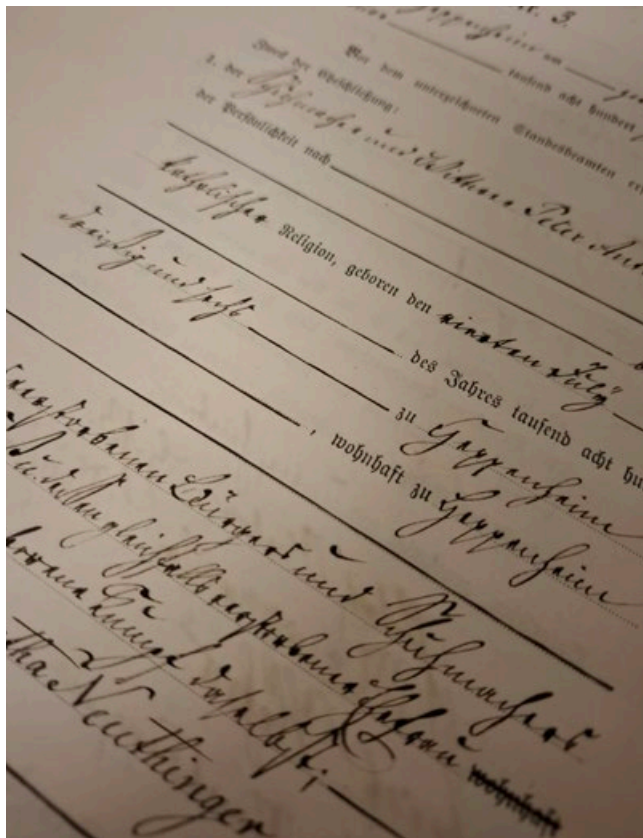 3.
Heppenheim am
tausend acht hundert
Vor dem unterzeichneten Standesbeamten
Zweck der Eheschließung:
1. der Schuhmacher und Wittwer Peter
der Persönlichkeit nach
katholischer Religion, geboren den vierten July
dreißig und sechs des Jahres tausend acht hu
zu Heppenheim
, wohnhaft zu Heppenheim
verstorbenen Bürgers und Schuhmachers
dessen gleichfalls verstorbenen Ehefrau wohnhaft
daselbst;
Neuthinger